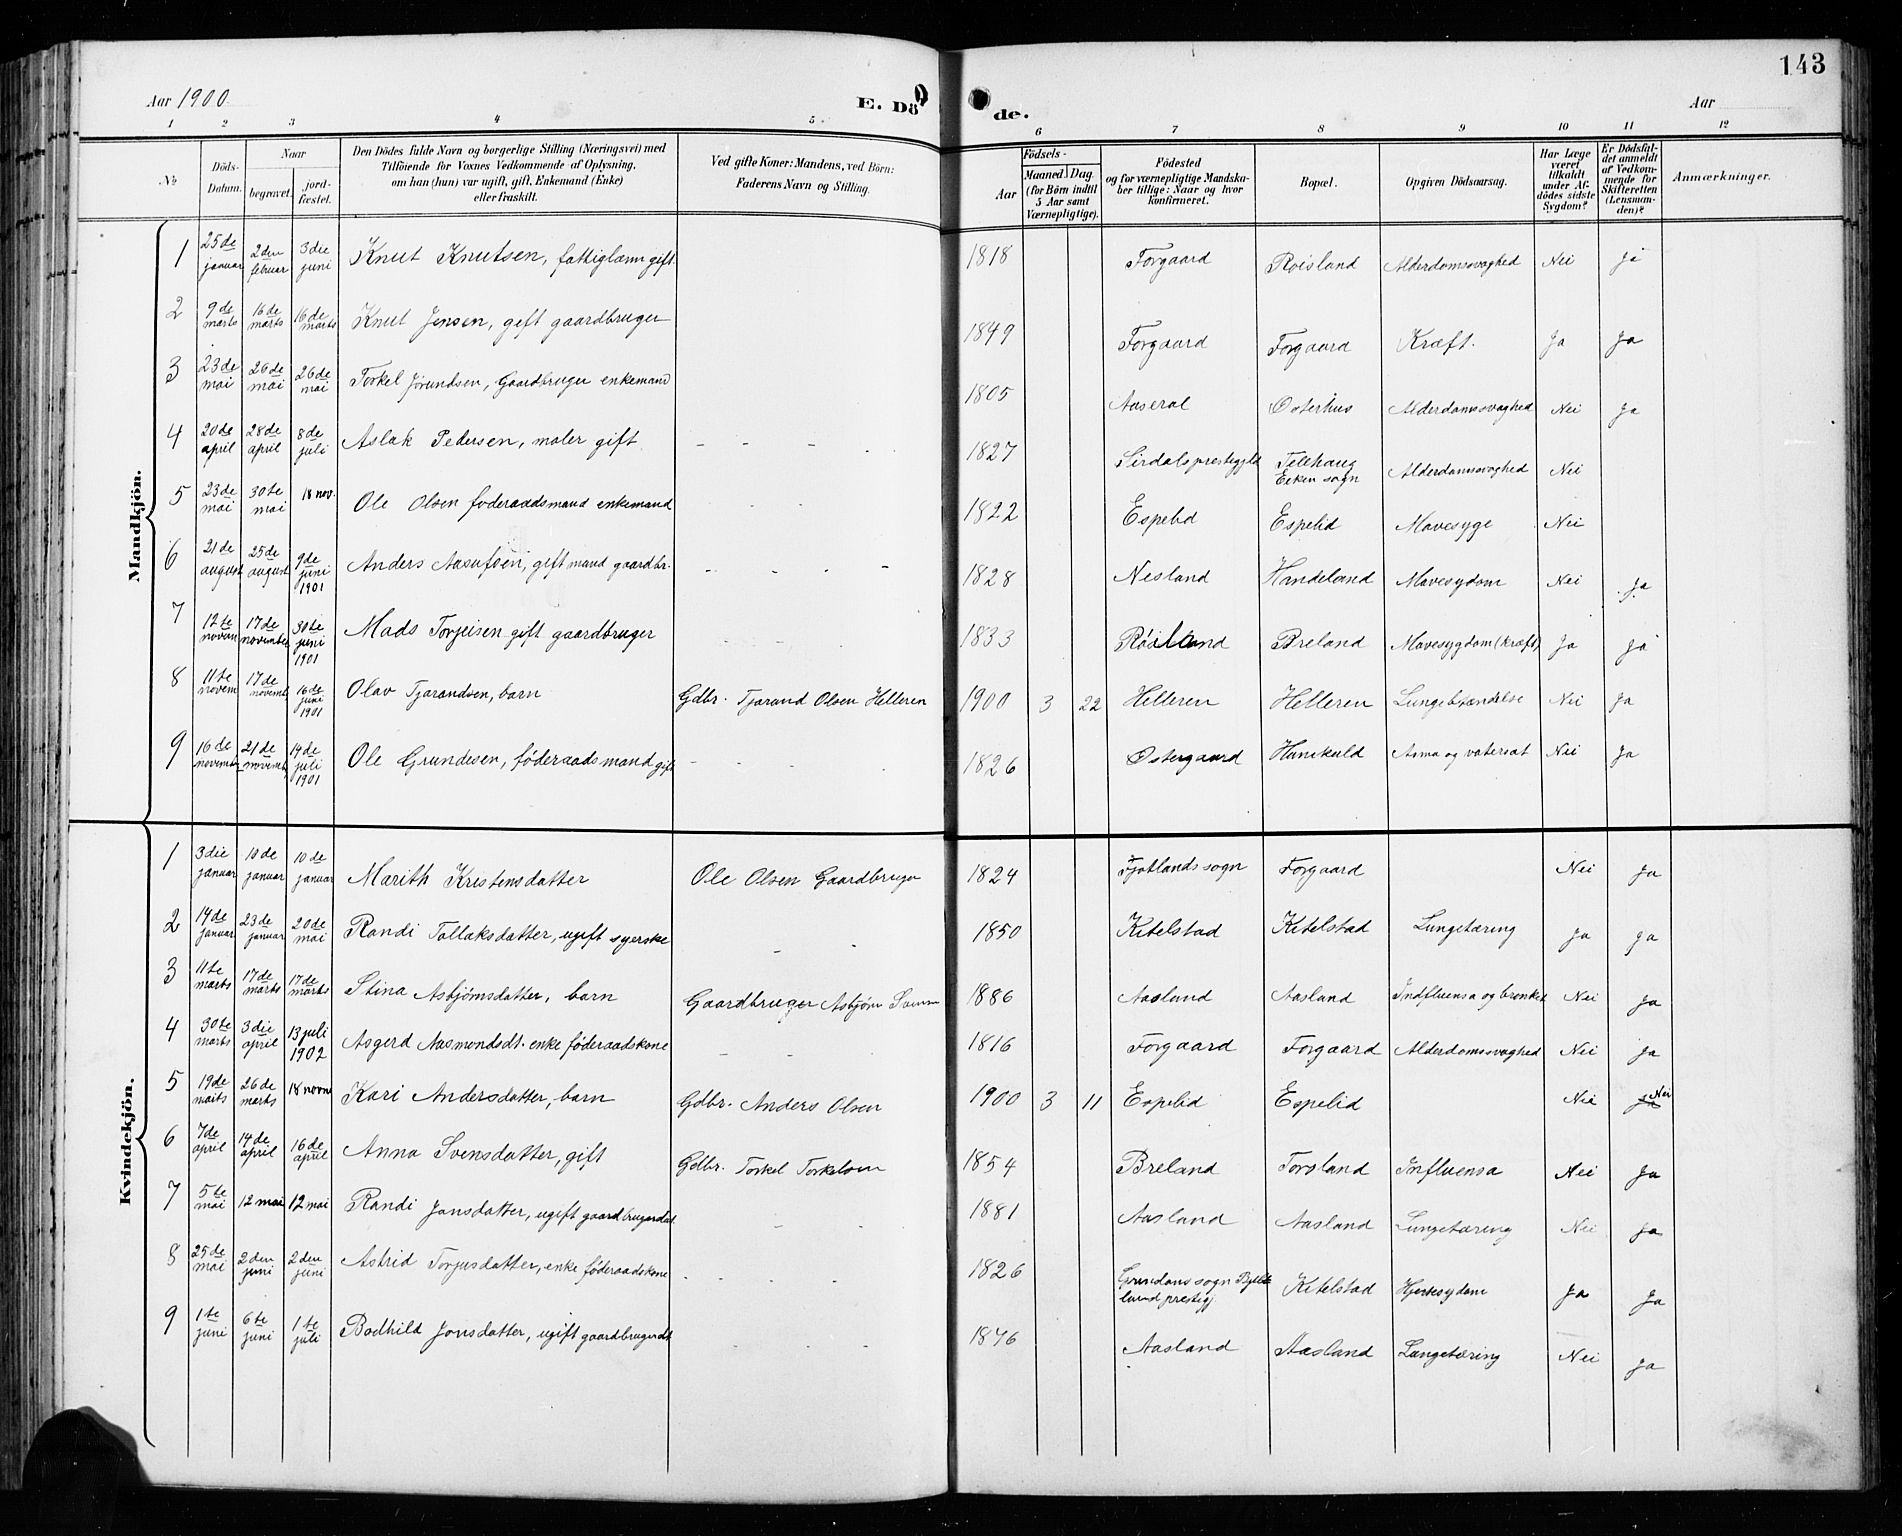 143
Aar 1900. E. Dö de. Aar
1 2 3 4 5. 6 7 8 9 10 11 12
№ Döds-Datum. Naar begravet. jord-fæstet. Den Dödes fulde Navn og borgerlige Stilling (Næringsvei) med Tilföiende for Voxnes Vedkommende af Oplysning, om han (hun) var ugift, gift, Enkemand (Enke) eller fraskilt. Ved gifte Koner: Mandens, ved Börn: Faderens Navn og Stilling. Födsels- Aar Maaned Dag (for Börn indtil 5 Aar samt Værnepligtige). Födested og for værnepligtige Mandska-ber tillige: Naar og hvor konfirmeret. Bopæl. Opgiven Dödsaarsag. Har Læge været tilkaldt under Af-dödes sidste Sygdom? Er Dödsfal-det anmeldt af Vedkom-mende for Skifteretten (Lensman-den)? Anmærkninger.
Mandkjön.
1 25de januar 2den februar 3die juni Knut Knutsen, fattiglæm gift. 1818 Forgaard Røisland Alderdomssvaghed Nei Ja
2 9de marts 16de marts 16de marts Knut Jensen, gift gaardbruger 1849 Forgaard Forgaard Kræft. Ja Ja
3 23de mai 26de mai 26de mai Torkel Jørundsen, Gaardbruger enkemand 1805 Aaseral Osterhus Alderdomssvaghed Nei Ja
4 20de april 28de april 8de juli Aslak Pedersen, maler gift - - - - 1827 Sirdals prestegjld Tellhaug Eiken sogn Alderdomssvaghed Nei
5 23de mai 30te mai 18 nov. Ole Olsen foderaadsmand enkemand - - 1822 Espelid Espelid Mavesyge Nei
6 21de august 25de august 9de juni 1901 Anders Aasufsen, gift mand gaardbr. - - - - 1828 Nesland Handeland Mavesygdom Nei Ja
7 12te novem 17de november 30te juni 1901 Mads Torjeisen gift gaardbruger - - 1833 Røisland Breland Mavesygdom (kræft) Ja Ja
8 11te novem 17de novemb 16de juni 1901 Olav Tjarandsen, barn Gdbr. Tjarand Olsen Helleren 1900 3 22 Helleren Helleren Lungebtændelse Nei Ja
9 16de novemb 21de novemb 14de juli 1901 Ole Grundesen, føderaadsmand gift - - - - 1826 Østergaard Hunskuld Asma og vatersot Nei Ja
Kvindekjön.
1 3die januar 10de januar 10de januar Marith Kristensdatter Ole Olsen Gaardbruger 1824 Fjotlands sogn Forgaard Nei Ja
2 14de januar 23de januar 20de mai Randi Tallaksdatter, ugift syerske - - 1850 Kitelstad Kitelstad Lungetæring Ja Ja
3 11te marts 17de marts 17de marts Stina Asbjørnsdatter, barn Gaardbruger Asbjørn 1886 Aasland Aasland Indfluensa og bronket Nei Ja
4 30te marts 3die april 13 juli 1902 Asgerd Aasmondsdt. enke føderaadskone - - 1816 Forgaard Forgaard Alderdomssvaghed Nei Ja
5 19de marts 26de marts 18 novm Kari Andersdatter, barn Gdbr. Anders Olsen 1900 3 11 Espelid Espelid Nei Ja Nei
6 7de april 14de april 16de april Anna Svensdatter, gift Gdbr. Torkel Torkelsen 1854 Breland Torsland Influensa Nei Ja
7 5te mai 12 mai 12 mai Randi Jonsdatter, ugift gaardbrugerdat - - 1881 Aasland Aasland Lungetæring Nei Ja
8 25de mai 2den juni 2den juni Astrid Torjusdatter, enke føderaadskone - - - - 1826 sogn Bygland prestegj Kitelstad Hjertesygdom Ja Ja
9 1te juni 6te juni 1te juli Bodhild Jonsdatter, ugift gaardbrugerdt - - - 1846 Aasland Aasland Lungetæring Nei Ja